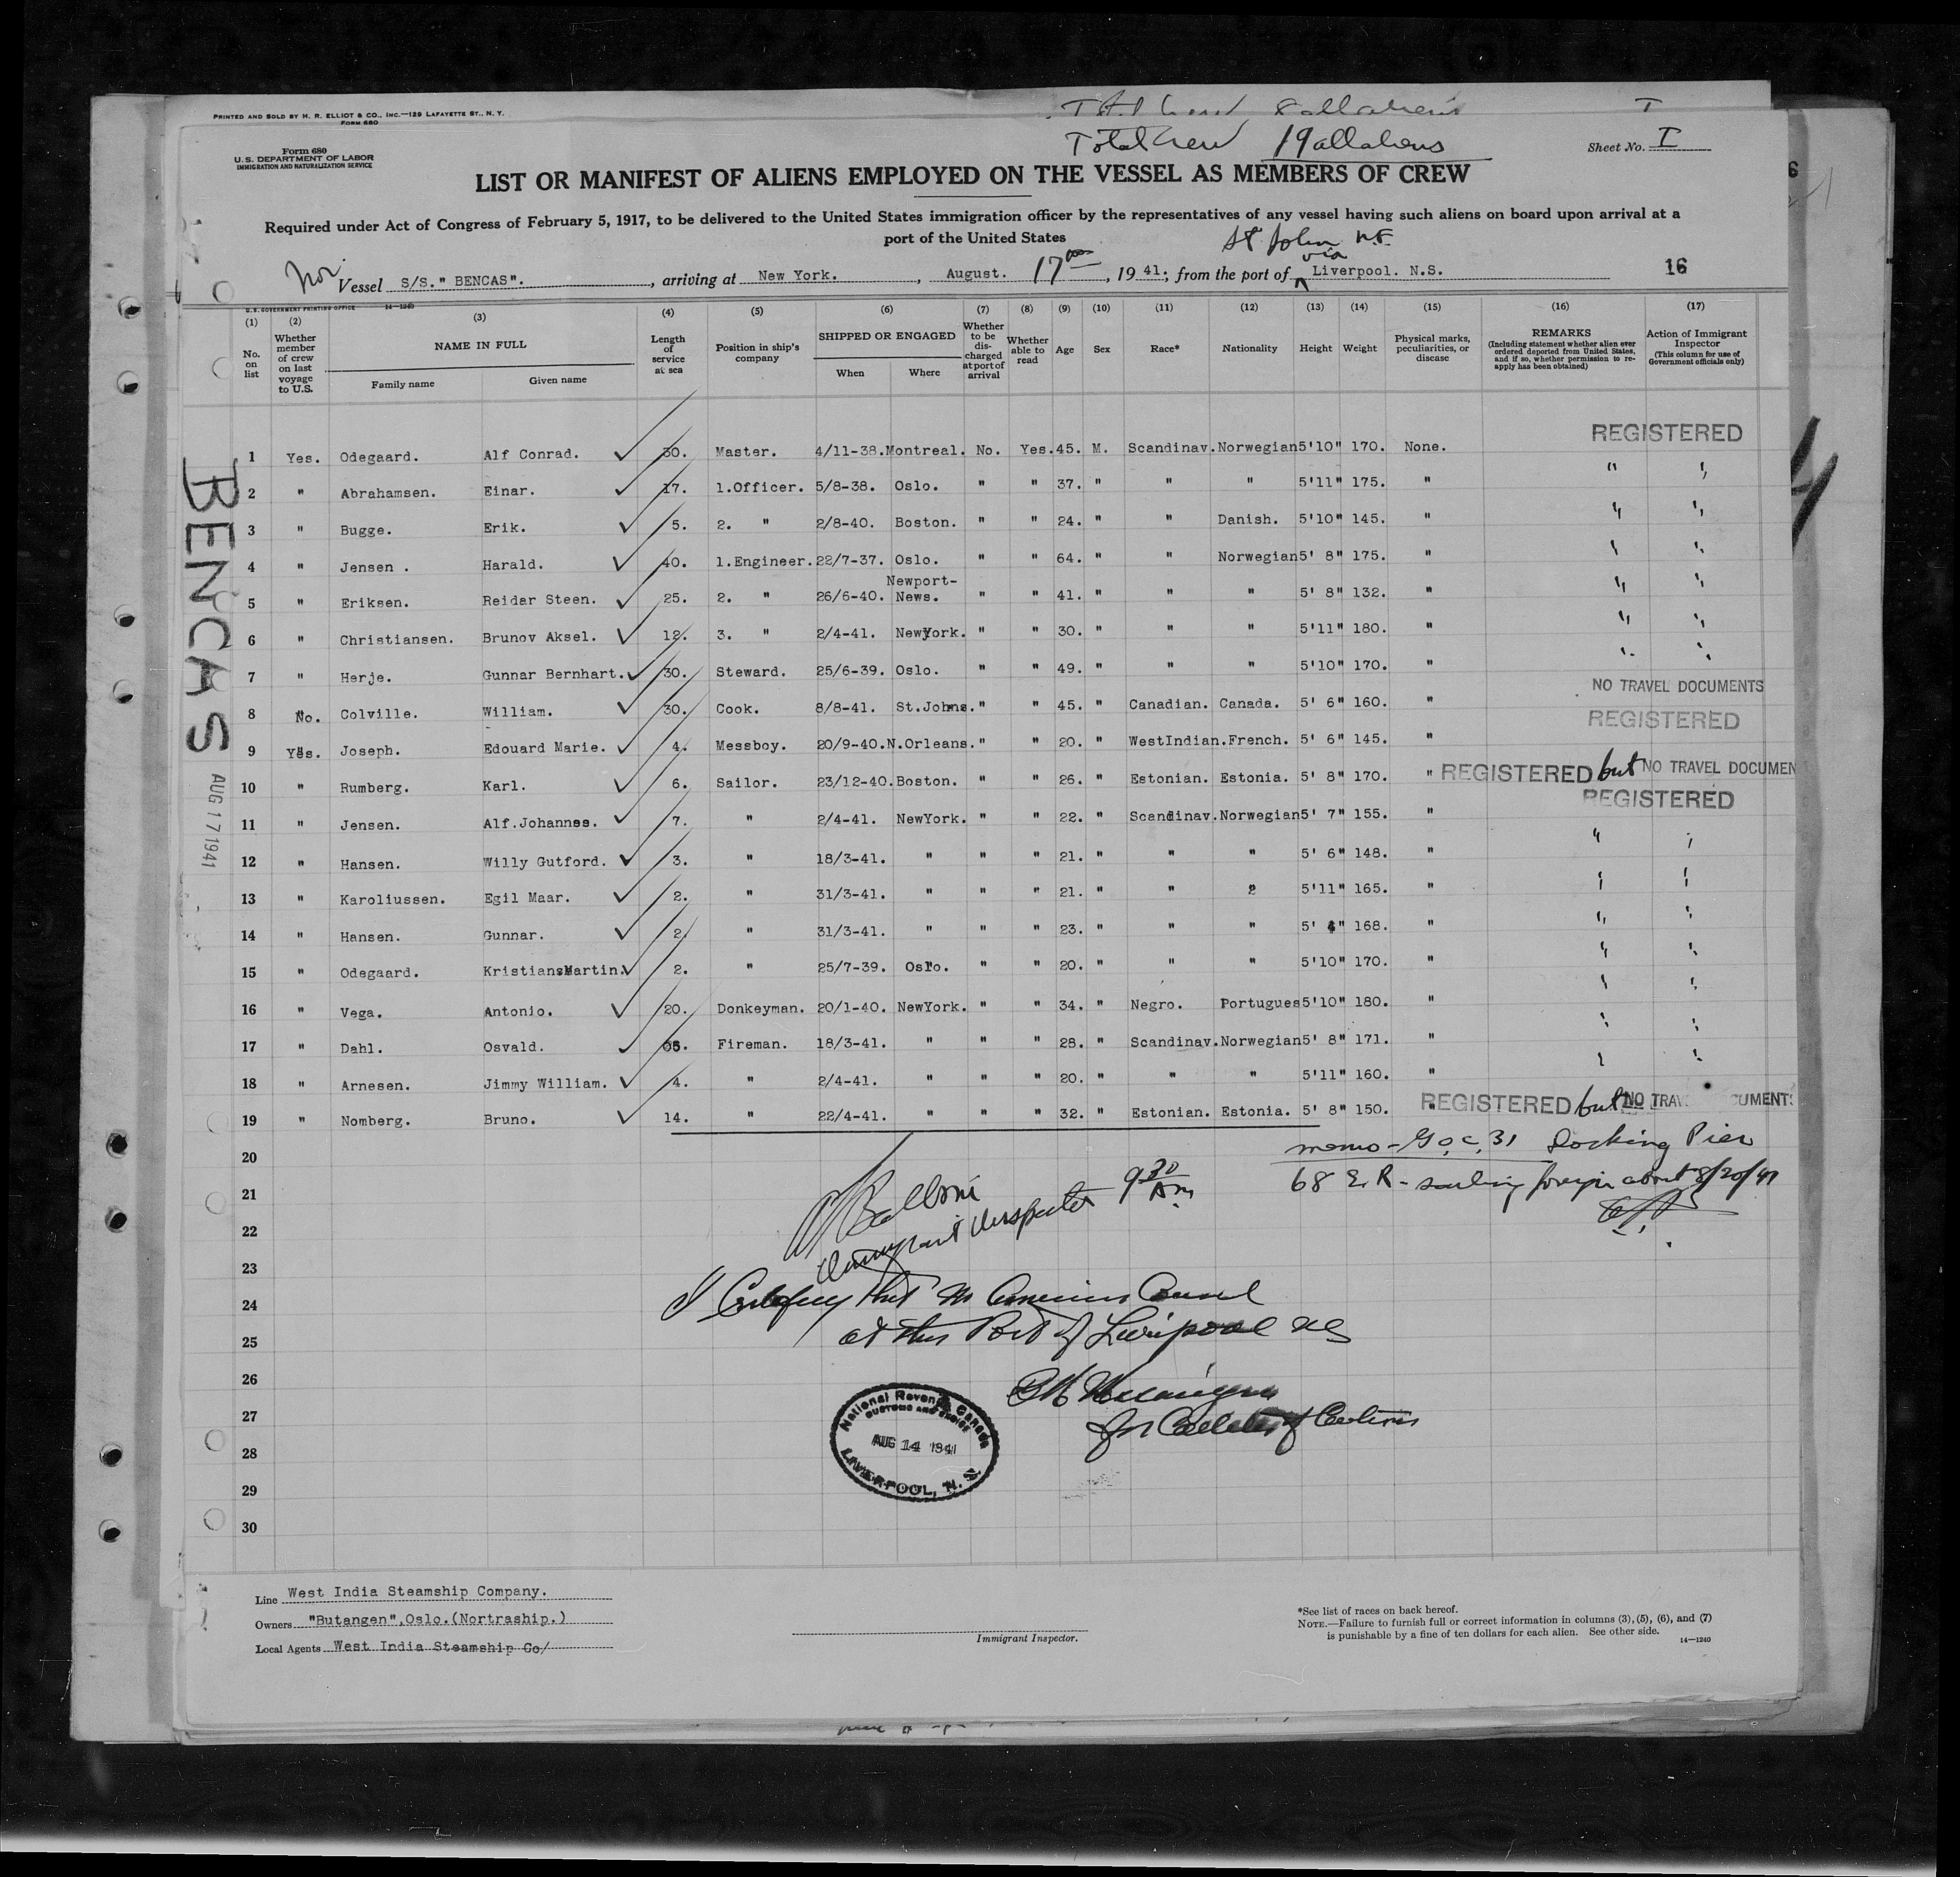 PRINTED AND SOLD BY H. R. ELLIOT & CO., INC.—129 LAFAYETTE ST., N. Y.
FORM 680
Total Crew 19 all aliens
Form 680
U. S. DEPARTMENT OF LABOR
IMMIGRATION AND NATURALIZATION SERVICE
Sheet No. I
LIST OR MANIFEST OF ALIENS EMPLOYED ON THE VESSEL AS MEMBERS OF CREW
Required under Act of Congress of February 5, 1917, to be delivered to the United States immigration officer by the representatives of any vessel having such aliens on board upon arrival at a
port of the United States
St John N.F.
via
Nor. Vessel S/S." BENCAS". , arriving at New York. , August. 17 , 19 41; from the port of Liverpool. N.S. 16
U. S. GOVERNMENT PRINTING OFFICE 14—1240
(1) (2) (3) (4) (5) (6) (7) (8) (9) (10) (11) (12) (13) (14) (15) (16) (17)
No. on list
Whether member of crew on last voyage to U.S.
NAME IN FULL
Family name Given name
Length of service at sea
Position in ship's company
SHIPPED OR ENGAGED
When Where
Whether to be discharged at port of arrival
Whether able to read
Age Sex Race* Nationality Height Weight
Physical marks, peculiarities, or disease
REMARKS
(Including statement whether alien ever ordered deported from United States, and if so, whether permission to reapply has been obtained)
Action of Immigrant Inspector
(This column for use of Government officials only)
REGISTERED
1 Yes. Odegaard. Alf Conrad. 30. Master. 4/11-38. Montreal. No. Yes. 45. M. Scandinav. Norwegian 5'10" 170. None.
2 " Abrahamsen. Einar. 17. 1.Officer. 5/8-38. Oslo. " " 37. " " " 5'11" 175. " " "
3 " Bugge. Erik. 5. 2. " 2/8-40. Boston. " " 24. " " Danish. 5'10" 145. " " "
4 " Jensen . Harald. 40. 1.Engineer. 22/7-37. Oslo. " " 64. " " Norwegian 5' 8" 175. " " "
5 " Eriksen. Reidar Steen. 25. 2. " 26/6-40. Newport-News. " " 41. " " " 5' 8" 132. " " "
6 " Christiansen. Brunov Aksel. 12. 3. " 2/4-41. NewYork. " " 30. " " " 5'11" 180. " " "
7 " Herje. Gunnar Bernhart. 30. Steward. 25/6-39. Oslo. " " 49. " " " 5'10" 170. " " "
NO TRAVEL DOCUMENTS
8 No. Colville. William. 30. Cook. 8/8-41. St.Johns. " " 45. " Canadian. Canada. 5' 6" 160. "
REGISTERED
9 Yes. Joseph. Edouard Marie. 4. Messboy. 20/9-40. N.Orleans. " " 20. " WestIndian. French. 5' 6" 145. "
10 " Rumberg. Karl. 6. Sailor. 23/12-40. Boston. " " 26. " Estonian. Estonia. 5' 8" 170. " REGISTERED but NO TRAVEL DOCUMEN
REGISTERED
11 " Jensen. Alf.Johannes. 7. " 2/4-41. NewYork. " " 22. " Scandinav. Norwegian 5' 7" 155. "
12 " Hansen. Willy Gutford. 3. " 18/3-41. " " " 21. " " " 5' 6" 148. " " "
13 " Karoliussen. Egil Maar. 2. " 31/3-41. " " " 21. " " " 5'11" 165. " " "
14 " Hansen. Gunnar. 2. " 31/3-41. " " " 23. " " " 5' 4" 168. " " "
15 " Odegaard. Kristian Martin. 2. " 25/7-39. Oslo. " " 20. " " " 5'10" 170. " " "
16 " Vega. Antonio. 20. Donkeyman. 20/1-40. NewYork. " " 34. " Negro. Portugues 5'10" 180. " " "
17 " Dahl. Osvald. Fireman. 18/3-41. " " " 28. " Scandinav. Norwegian 5' 8" 171. " " "
18 " Arnesen. Jimmy William. 4. " 2/4-41. " " " 20. " " " 5'11" 160. " " "
19 " Nomberg. Bruno. 14. " 22/4-41. " " " 32. " Estonian. Estonia. 5' 8" 150. " REGISTERED but NO TRAV CUMENTS
20
21
22
23
24
25
26
27
28
29
30
memo - G.O.C. 31 Docking Pier
68 E.R - sailing foreign about 8/20/41
Immigrant Inspector 9 30 Am
I Certify that no American Consul
at this Port of Liverpool NS
for Collector of Customs
National Revenue Canada
CUSTOMS AND EXCISE
AUG 14 1941
LIVERPOOL, N. S.
BENCAS
AUG 17 1941
Line West India Steamship Company.
Owners "Butangen",Oslo.(Nortraship.)
Local Agents West India Steamship Co/
Immigrant Inspector.
*See list of races on back hereof.
NOTE.—Failure to furnish full or correct information in columns (3), (5), (6), and (7)
is punishable by a fine of ten dollars for each alien. See other side.
14—1240